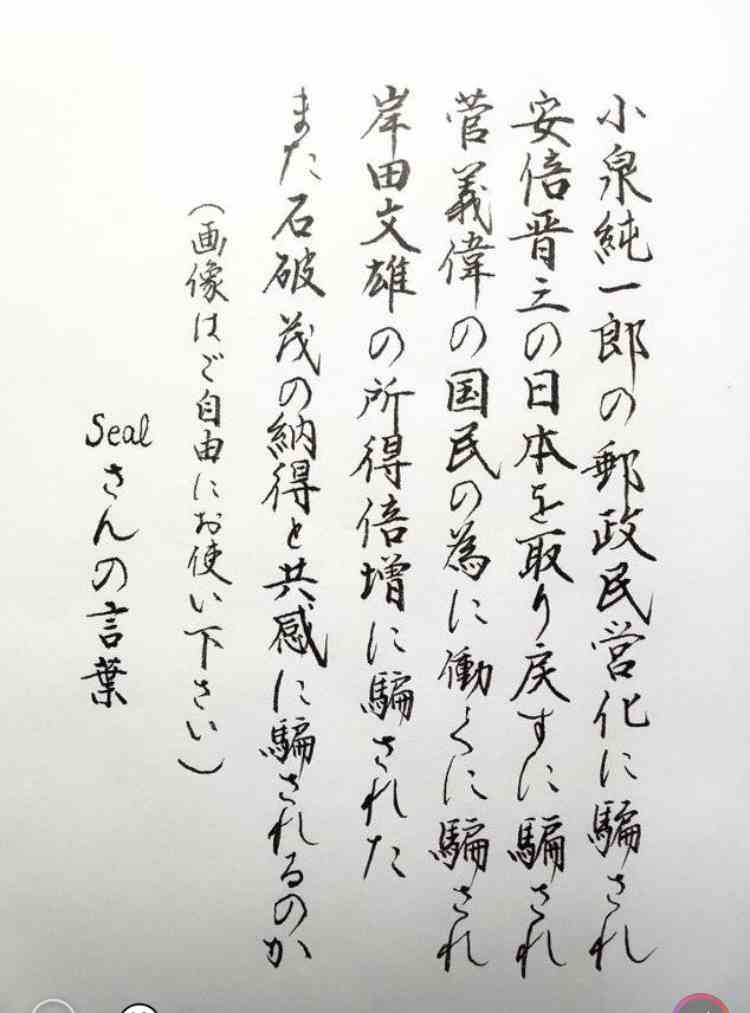 小泉純一郎の郵政民営化に騙され
安倍晋三の日本を取り戻すに騙され
菅義偉の国民の為に働くに騙され
岸田文雄の所得倍増に騙された
また石破茂の納得と共感に騙されるのか
（画像はご自由にお使い下さい）
Sealさんの言葉